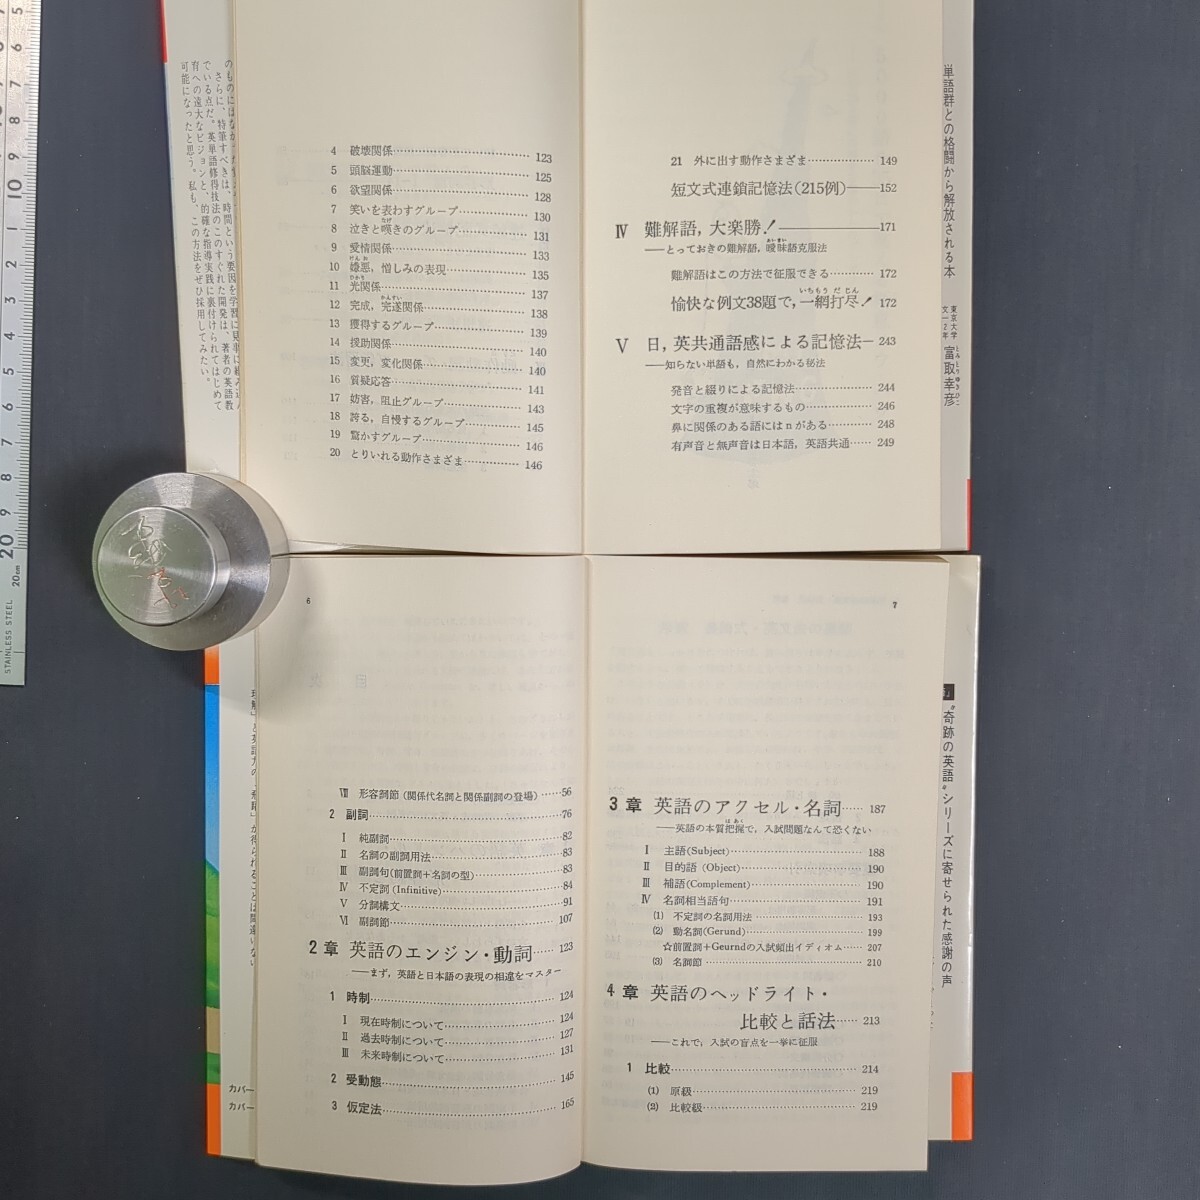 4 破壊関係 123
5 頭脳運動 125
6 欲望関係 128
7 笑いを表わすグループ 130
8 泣きと嘆きのグループ 131
9 愛情関係 133
10 嫌悪，憎しみの表現 135
11 光関係 137
12 完成，完遂関係 138
13 獲得するグループ 139
14 援助関係 140
15 変更，変化関係 140
16 質疑応答 141
17 妨害，阻止グループ 143
18 誇る，自慢するグループ 145
19 驚かすグループ 146
20 とりいれる動作さまざま 146
21 外に出す動作さまざま 149
短文式連鎖記憶法(215例) 152
Ⅳ 難解語，大楽勝！ 171
──とっておきの難解語，曖昧語克服法
難解語はこの方法で征服できる 172
愉快な例文38題で，一網打尽！ 172
Ⅴ 日，英共通語感による記憶法 243
──知らない単語も，自然にわかる秘法
発音と綴りによる記憶法 244
文字の重複が意味するもの 246
鼻に関係のある語にはnがある 248
有声音と無声音は日本語，英語共通 249
単語群との格闘から解放される本
東京大学文一2年 富取幸彦
さらに、特筆すべきは、時間という要因を学習に見事に組み込ん
でいる点だ。英単語修得技法のこのすぐれた開発は、著者の英語教
育への遠大なビジョンと、的確な指導実践に裏付けられてはじめて
可能になったと思う。私も、この方法をぜひ採用してみたい。
STAINLESS STEEL
20cm
6
Ⅷ 形容詞節(関係代名詞と関係副詞の登場) 56
2 副詞 76
Ⅰ 純副詞 82
Ⅱ 名詞の副詞用法 83
Ⅲ 副詞句(前置詞+名詞の型) 83
Ⅳ 不定詞(Infinitive) 84
Ⅴ 分詞構文 91
Ⅵ 副詞節 107
2章 英語のエンジン・動詞 123
──まず，英語と日本語の表現の相違をマスター
1 時制 124
Ⅰ 現在時制について 124
Ⅱ 過去時制について 127
Ⅲ 未来時制について 131
2 受動態 145
3 仮定法 165
7
3章 英語のアクセル・名詞 187
──英語の本質把握で，入試問題なんて恐くない
Ⅰ 主語(Subject) 188
Ⅱ 目的語(Object) 190
Ⅲ 補語(Complement) 190
Ⅳ 名詞相当語句 191
(1) 不定詞の名詞用法 193
(2) 動名詞(Gerund) 199
☆前置詞+Geurndの入試頻出イディオム 207
(3) 名詞節 210
4章 英語のヘッドライト・
比較と話法 213
──これで，入試の盲点を一挙に征服
1 比較 214
(1) 原級 219
(2) 比較級 219
“奇跡の英語”シリーズに寄せられた感謝の声
カバー
カバー